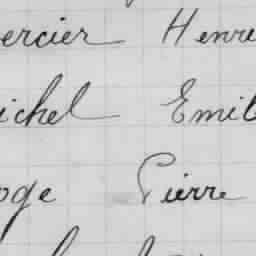 ercier Henri
ichel Emil
oge Pierre